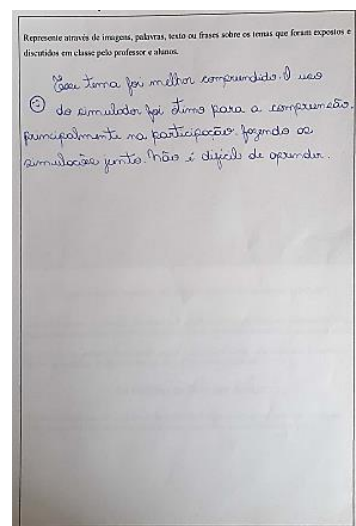 Represente através de imagens, palavras, texto ou frases sobre os temas que foram expostos e
discutidos em classe pelo professor e alunos.
Esse tema foi melhor compreendido. O uso
do simulador foi ótimo para a compreensão.
principalmente na participação. fazendo as
simulações junto. Não é difícil de aprender.